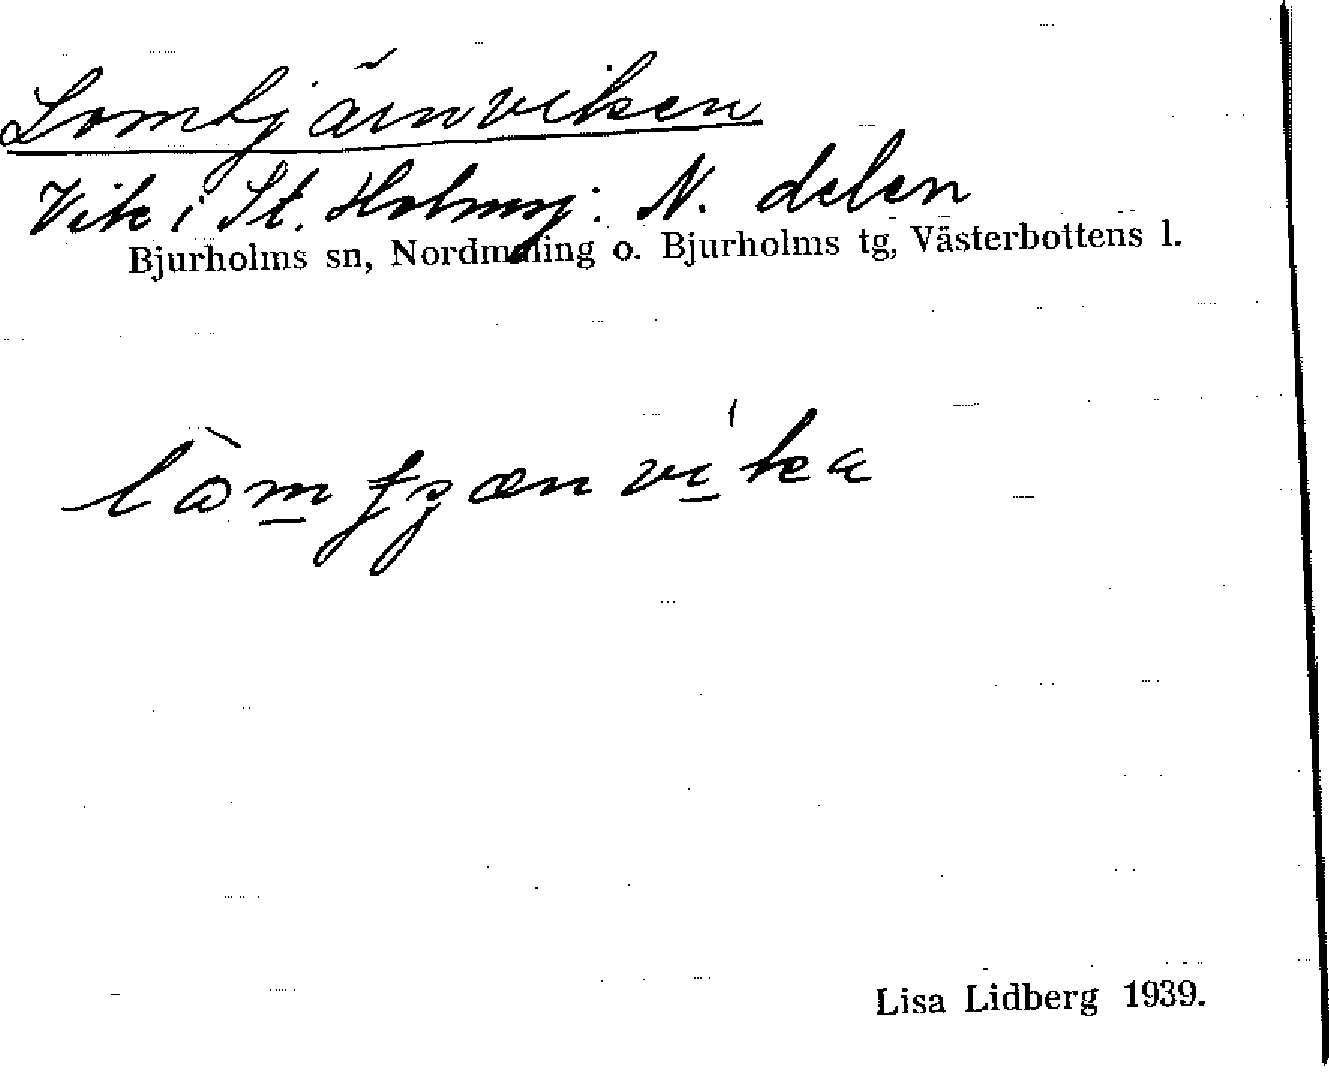 Lomtjärnviken
Vik i St. Holmsj: N. delen
Bjurholms sn, Nordmaling o. Bjurholms tg, Västerbottens l.
Lisa Lidberg 1939.